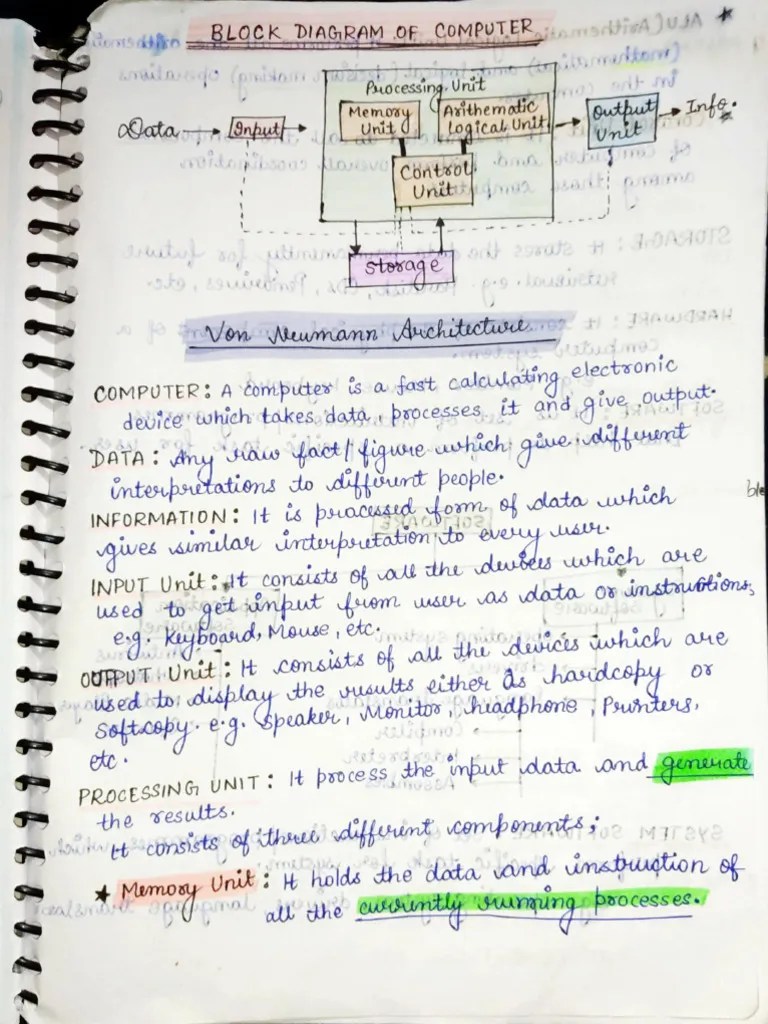 BLOCK DIAGRAM OF COMPUTER
Processing Unit
Data
Input
Memory Unit
Arithematic Logical Unit
Control Unit
Output Unit
Info.
Storage
Von Neumann Architecture
COMPUTER: A computer is a fast calculating electronic
device which takes data, processes it and give output.
DATA: Any raw fact/figure which give different
interpretations to different people.
INFORMATION: It is processed form of data which
gives similar interpretation to every user.
INPUT Unit: It consists of all the devices which are
used to get input from user as data or instructions,
e.g. Keyboard, Mouse, etc.
OUTPUT Unit: It consists of all the devices which are
used to display the results either as hardcopy or
Softcopy. e.g. Speaker, Monitor, headphone, Printers,
etc.
PROCESSING UNIT: It process the input data and generate
the results.
It consists of three different components;
★ Memory Unit: It holds the data and instruction of
all the currently running processes.